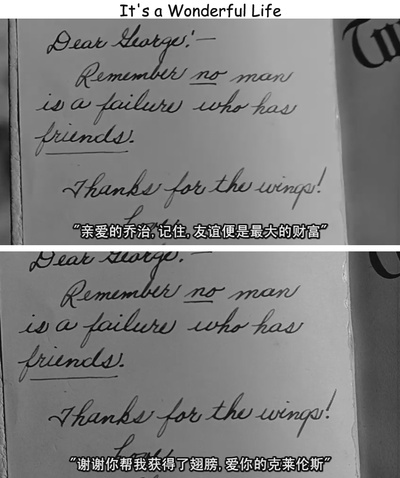 It's a Wonderful Life
Dear George:—
Remember no man
is a failure who has
friends.
Thanks for the wings!
Love
"亲爱的乔治,记住,友谊便是最大的财富"
Dear George:—
Remember no man
is a failure who has
friends.
Thanks for the wings!
Love
"谢谢你帮我获得了翅膀,爱你的克莱伦斯"